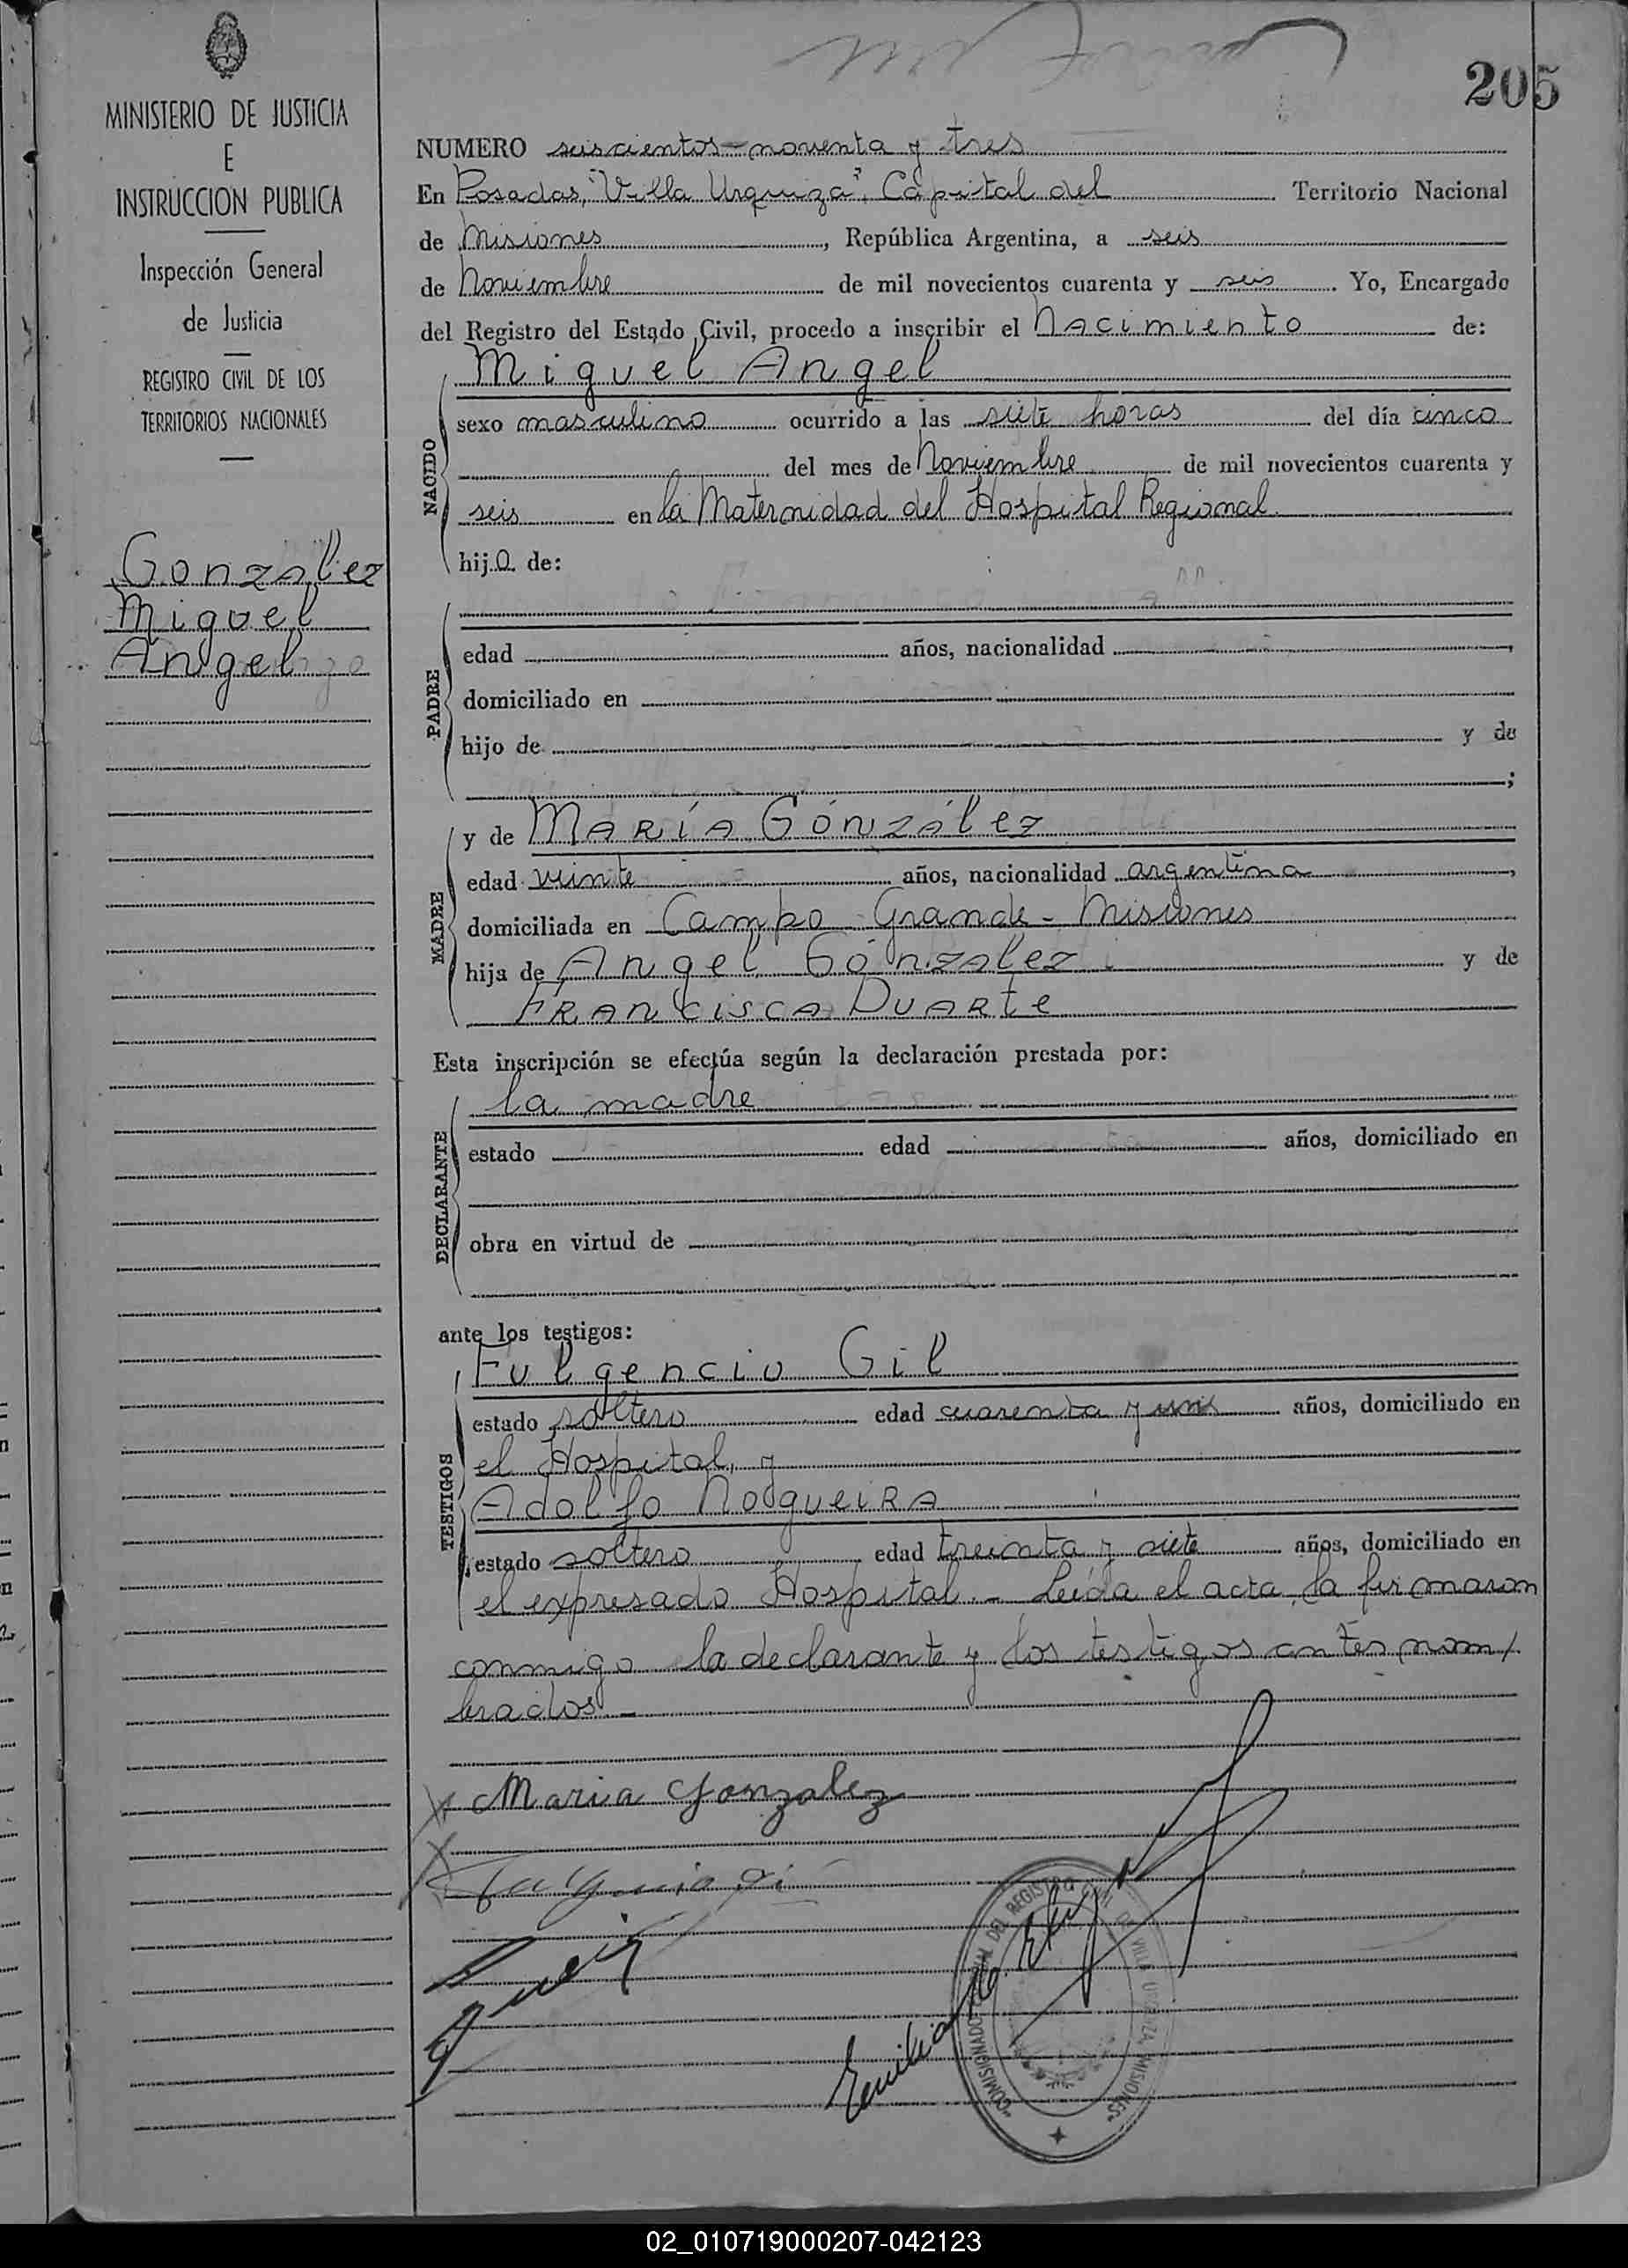 205
MINISTERIO DE JUSTICIA
E
INSTRUCCION PUBLICA
Inspección General
de Justicia
REGISTRO CIVIL DE LOS
TERRITORIOS NACIONALES
Gonzalez
Miguel
Angel
NUMERO seiscientos-noventa y tres
En Posadas, "Villa Urquiza", Capital del Territorio Nacional
de Misiones, República Argentina, a seis
de Noviembre de mil novecientos cuarenta y seis. Yo, Encargado
del Registro del Estado Civil, procedo a inscribir el Nacimiento de:
NACIDO
Miguel Angel
sexo masculino ocurrido a las siete horas del día cinco
del mes de Noviembre de mil novecientos cuarenta y
seis en la Maternidad del Hospital Regional
hijo de:
PADRE
edad años, nacionalidad ,
domiciliado en
hijo de y de
;
MADRE
y de María González
edad veinte años, nacionalidad argentina,
domiciliada en Campo Grande - Misiones
hija de Angel González y de
Francisca Duarte
Esta inscripción se efectúa según la declaración prestada por:
DECLARANTE
la madre
estado edad años, domiciliado en
obra en virtud de
ante los testigos:
TESTIGOS
Fulgencio Gil
estado soltero edad cuarenta y un años, domiciliado en
el Hospital, y
Adolfo Nogueira
estado soltero edad treinta y siete años, domiciliado en
el expresado Hospital.- Leída el acta, la firmaron
conmigo la declarante y los testigos antes nom/
brados.-
Maria Gonzalez
DEL REGISTRO CIVIL DE VILLA URQUIZA, MISIONES
02_010719000207-042123